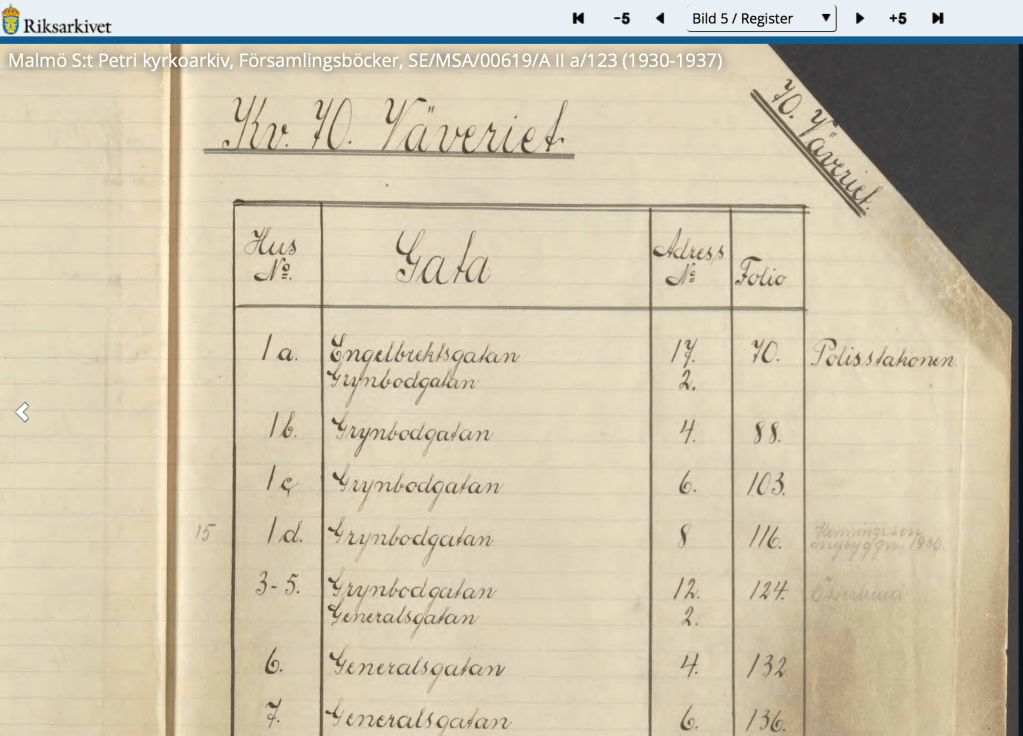 Riksarkivet
-5
Bild 5 / Register
+5
Malmö S:t Petri kyrkoarkiv, Församlingsböcker, SE/MSA/00619/A II a/123 (1930-1937)
Kv. 70. Väveriet.
70. Väveriet.
Hus No. Gata Adress No Folio
1 a. Engelbrektsgatan 17. 70. Polisstationen.
Grynbodgatan 2.
1 b. Grynbodgatan 4. 88.
1 c Grynbodgatan 6. 103.
15 1 d. Grynbodgatan 8 116. Henningsson
nybyggn. 1930.
3-5. Grynbodgatan 12. 124.
Generalsgatan 2.
6. Generalsgatan 4. 132
7. Generalsgatan 6. 136.